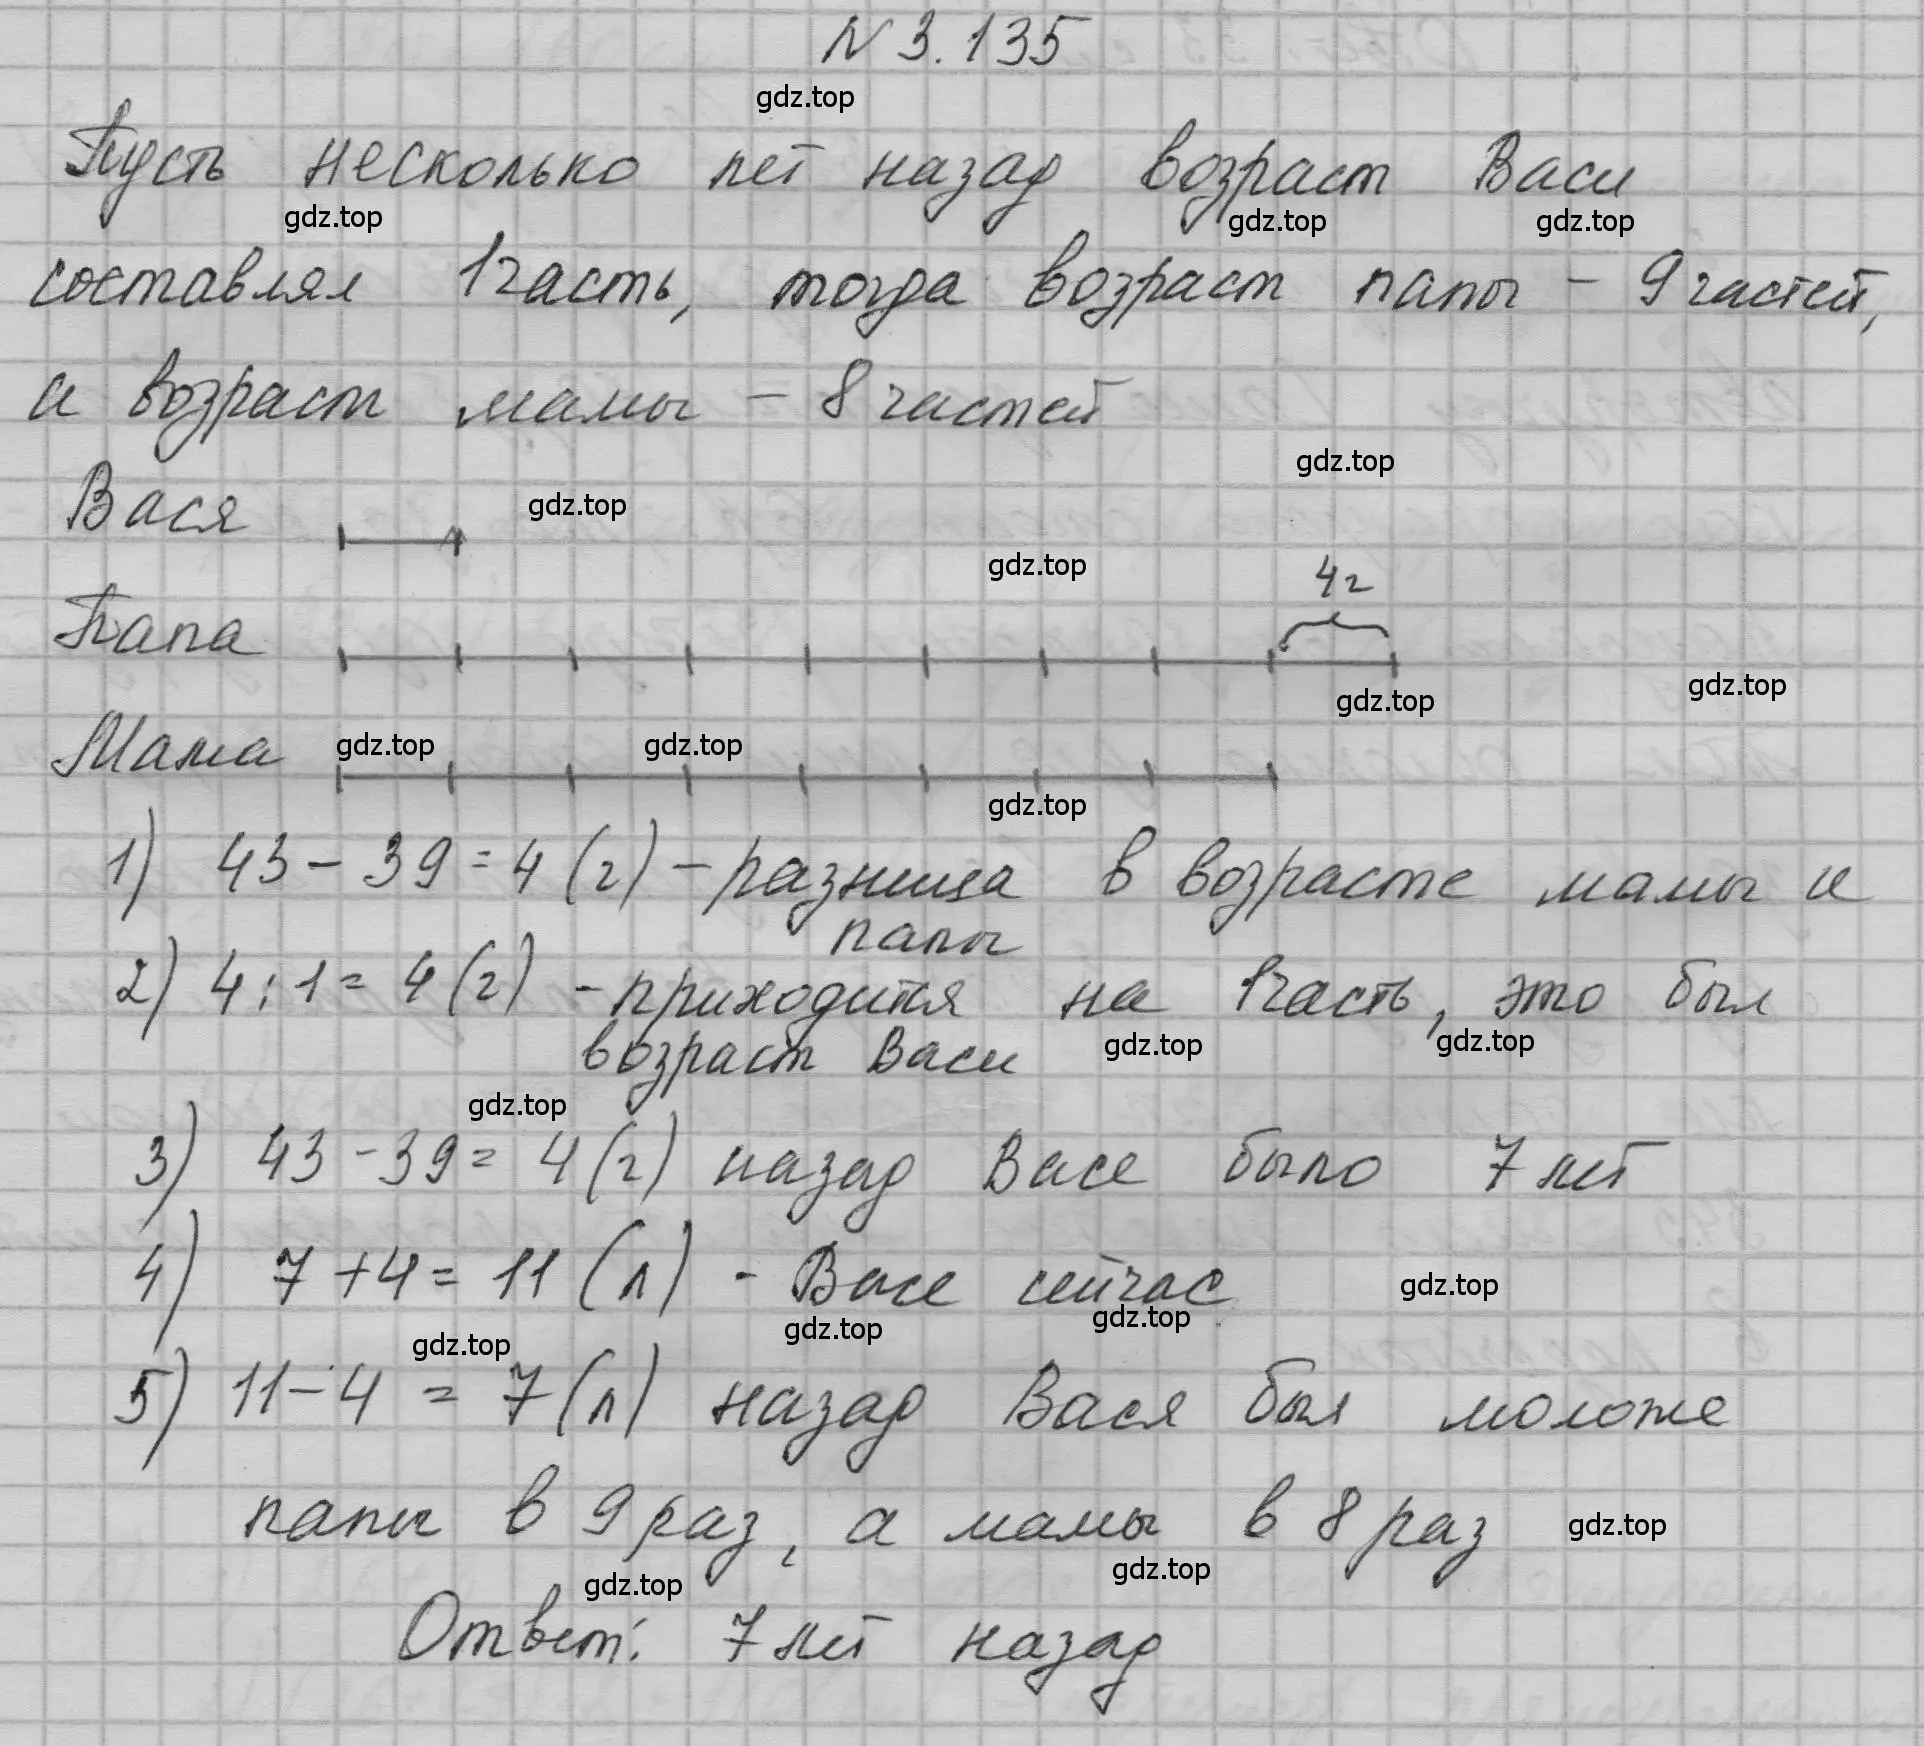 N 3.135
gdz.top
Пусть несколько лет назад возраст Васи
gdz.top gdz.top gdz.top
составлял 1 часть, тогда возраст папы – 9 частей,
а возраст мамы – 8 частей
gdz.top
Вася gdz.top
gdz.top 4г
Папа
gdz.top gdz.top
Мама gdz.top gdz.top
gdz.top
1) 43 – 39 = 4 (г) – разница в возрасте мамы и
папы
2) 4 : 1 = 4 (г) – приходится на 1 часть, это был
возраст Васи gdz.top gdz.top
gdz.top
3) 43 – 39 = 4 (г) назад Васе было 7 лет
4) 7 + 4 = 11 (л) - Васе сейчас gdz.top
gdz.top gdz.top gdz.top
5) 11 – 4 = 7 (л) назад Вася был моложе
папы в 9 раз, а мамы в 8 раз gdz.top
gdz.top gdz.top
Ответ: 7 лет назад